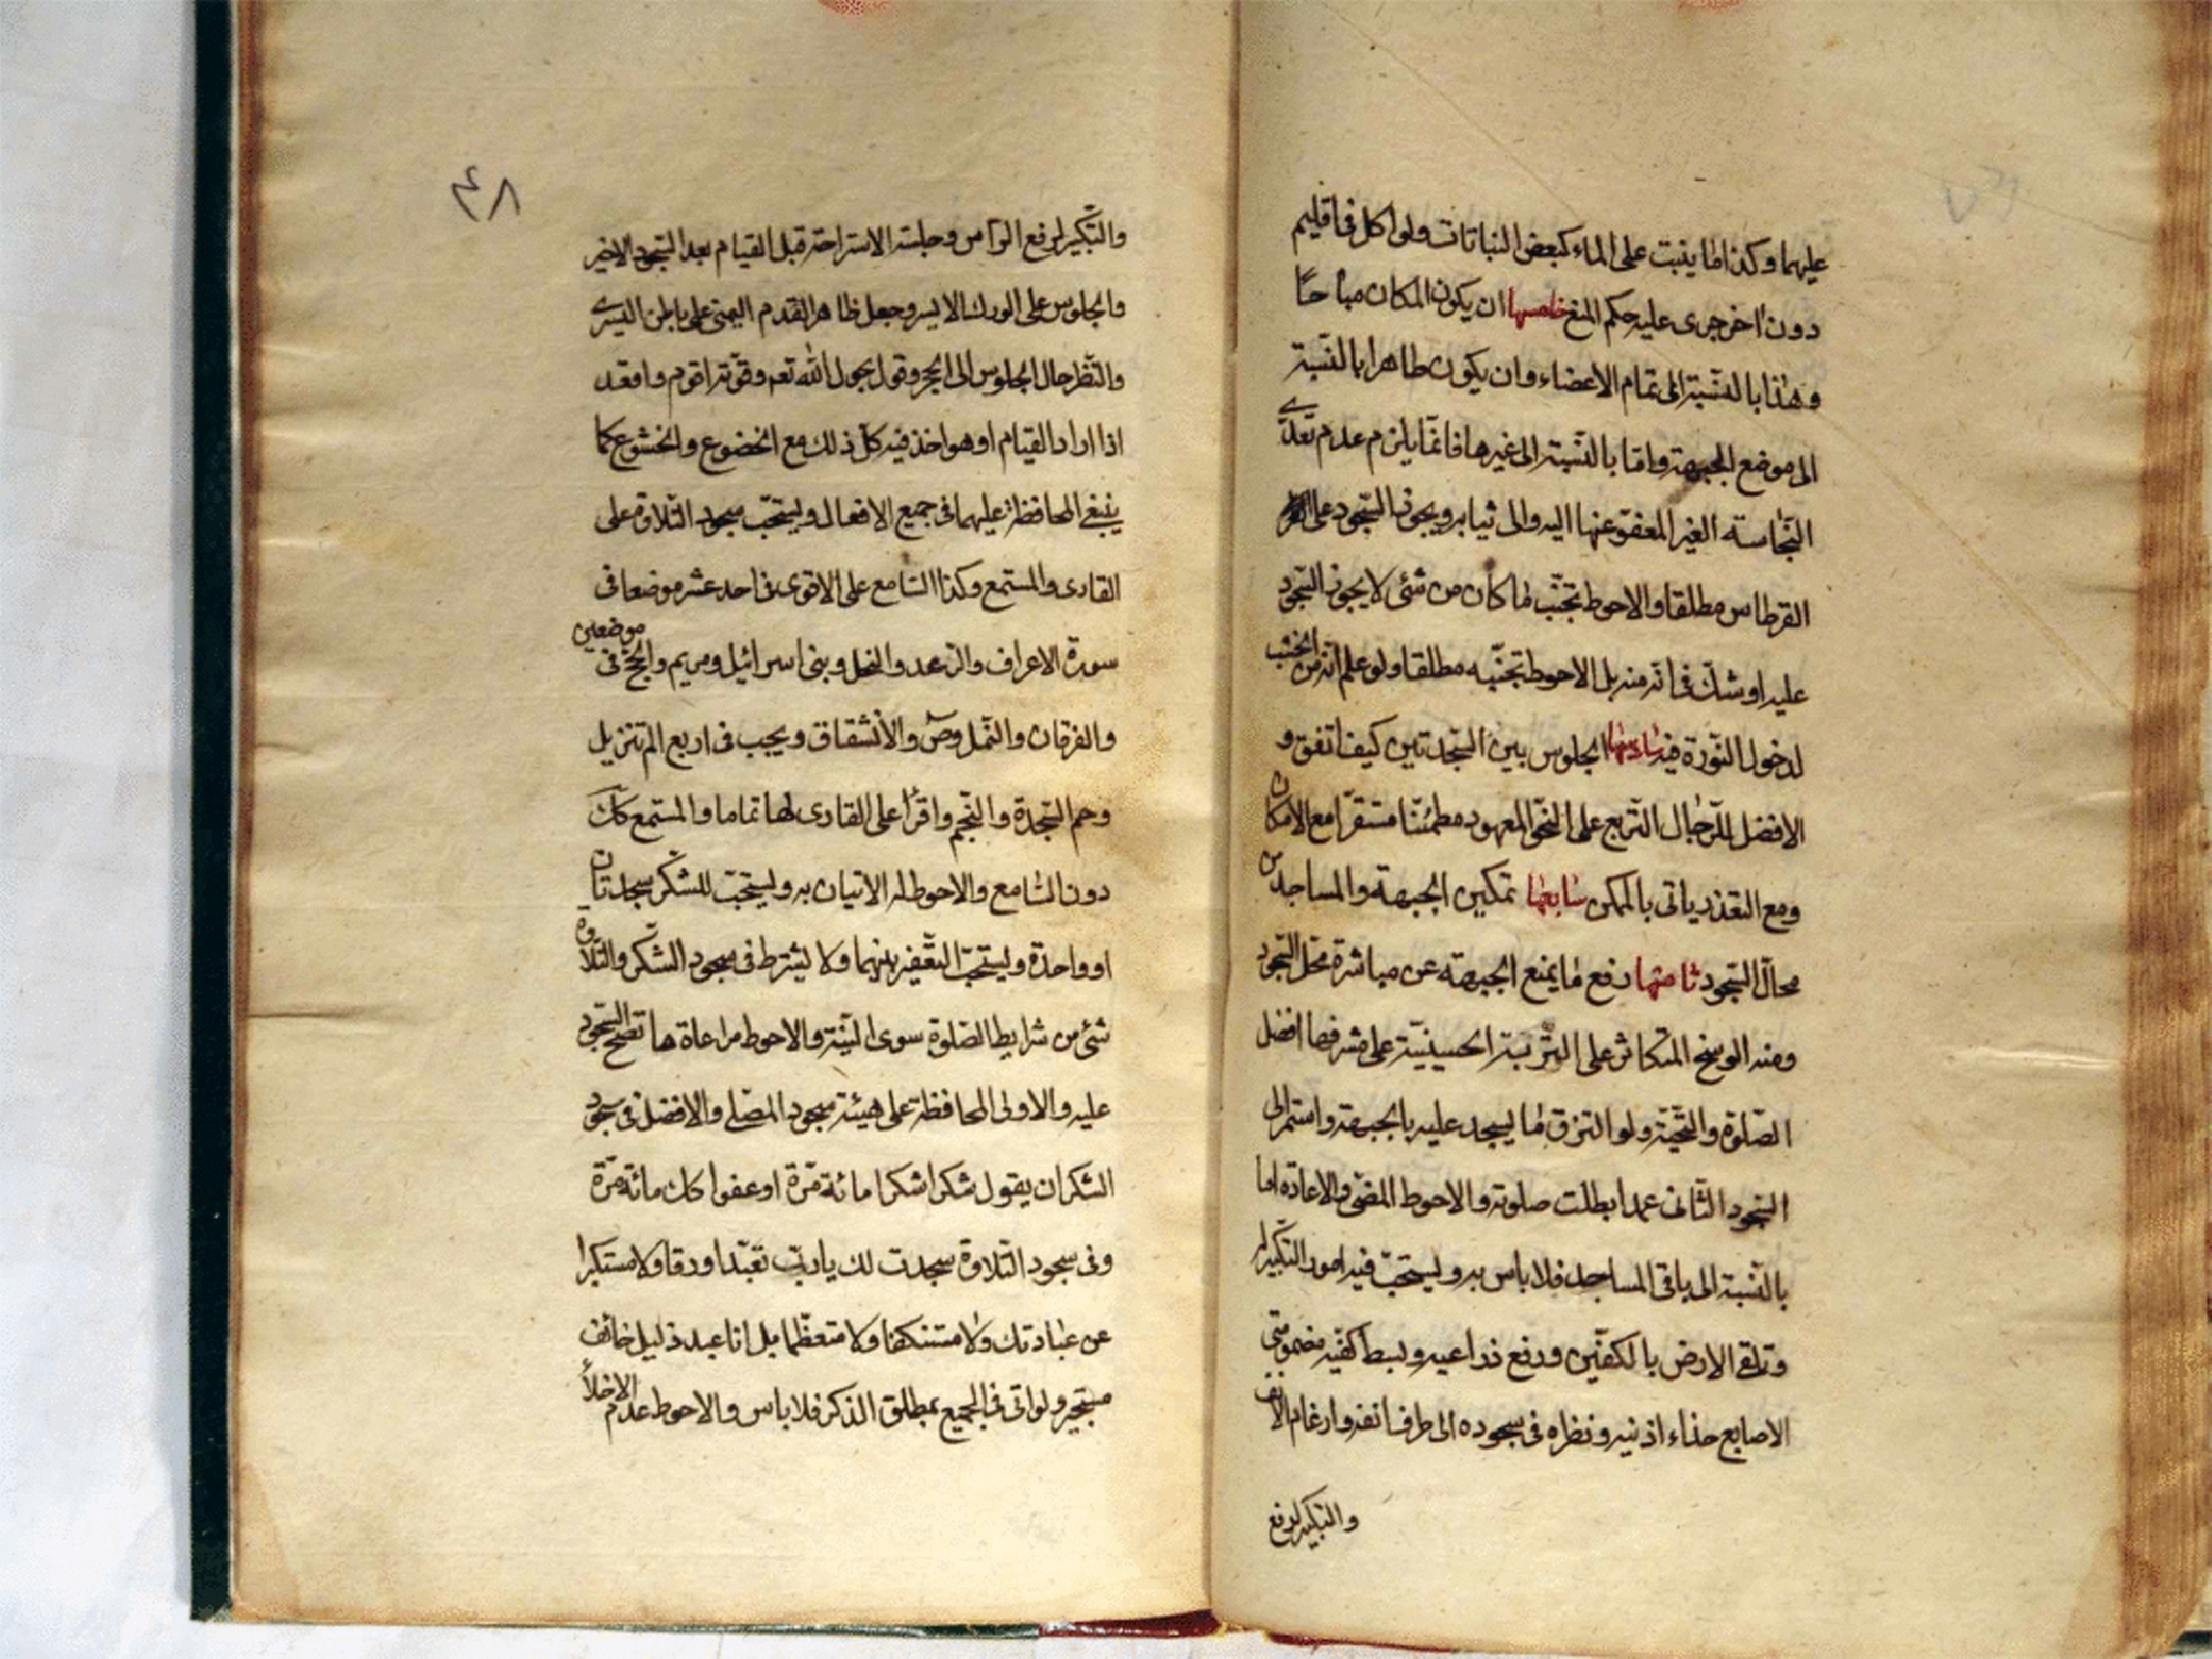 عليهما وكذا ما ينبت على الماء كبعض النباتات ولو اكل فى اقليم
دون اخر جرى عليه حكم المنع خامسها ان يكون المكان مباحًا
وهذا بالنسبة الى تمام الاعضاء وان يكون طاهرا بالنسبة
الى موضع الجبهة وامّا بالنسبة الى غيرها فانّما يلزم عدم تعدّى
النجاسته الغير المعفوّ عنها اليه والى ثيابه ويجوز السّجود على
القرطاس مطلقا والاحوط تجنّب ما كان من شئى لا يجوز السّجود
عليه او شكّ فى انّه منه بل الاحوط تجنّبه مطلقا ولو علم انّه من الخشب
لدخول النّورة فيه سادسها الجلوس بين السّجدتين كيف اتفق و
الافضل للرّجال التربّع على النّحو المعهود مطمئنّا مستقرّا مع الامكان
ومع التعذر ياتى بالممكن سابعها تمكين الجبهة والمساجد من
محالّ السّجود ثامنها رفع ما يمنع الجبهة عن مباشرة محلّ السّجود
ومنه الوسخ المتكاثر على التربة الحسينيّة على مشرفها افضل
الصّلوة والتّحيّة ولو التزق ما يسجد عليه بالجبهة واستمر الى
السّجود الثّانى عمدا بطلت صلوته والاحوط المضىّ والاعادة امّا
بالنّسبة الى باقى المساجد فلا باس به ويستحبّ فيه امور التّكبير له
وتلقى الارض بالكفّين ورفع ذراعيه وبسط كفّيه مضمومتى
الاصابع حذاء اذنيه ونظره فى سجوده الى طرف انفه وارغام الانف
والتكبير لرفع
٤٨
والتّكبير لرفع الرّاس وجلسة الاستراحة قبل القيام بعد السّجود الاخير
والجلوس على الورك الايسر وجعل ظاهر القدم اليمنى على باطن اليسرى
والنّظر حال الجلوس الى الحجر وقول بحول الله تعم وقوّته اقوم واقعد
اذا اراد القيام او هو اخذ فيه كلّ ذلك مع الخضوع والخشوع كما
ينبغى المحافظة عليهما فى جميع الافعال ويستحبّ سجود التّلاوة على
القارى والمستمع وكذا السّامع على الاقوى فى احد عشر موضعا فى
سورة الاعراف والرّعد والنحل وبنى اسرائيل ومريم والحجّ فى موضعين
والفرقان والنّمل وصٓ والانشقاق ويجب فى اربع الم تنزيل
وحم السّجدة والنّجم واقرأ على القارى لها تماما والمستمع كك
دون السّامع والاحوط له الاتيان به ويستحبّ للشّكر سجدتان
او واحدة ويستحبّ التعّفير بينهما ولا يشترط فى سجود الشّكر والتّلاوة
شئ من شرايط الصّلوة سوى النّية والاحوط مراعاة ما تصحّ السّجود
عليه والاولى المحافظة على هيئة سجود المصّلى والافضل فى سجود
الشكر ان يقول شكرا شكرا مائة مرّة او عفوا كك مائة مرّة
وفى سجود التّلاوة سجدت لك يا ربّ تعبّدا ورقا ولا مستكبرا
عن عبادتك ولا مستنكفا ولا متعظّما بل انا عبد ذليل خائف
مستجير ولو اتى فى الجميع بمطلق الذكر فلا باس والاحوط عدم الاخلال